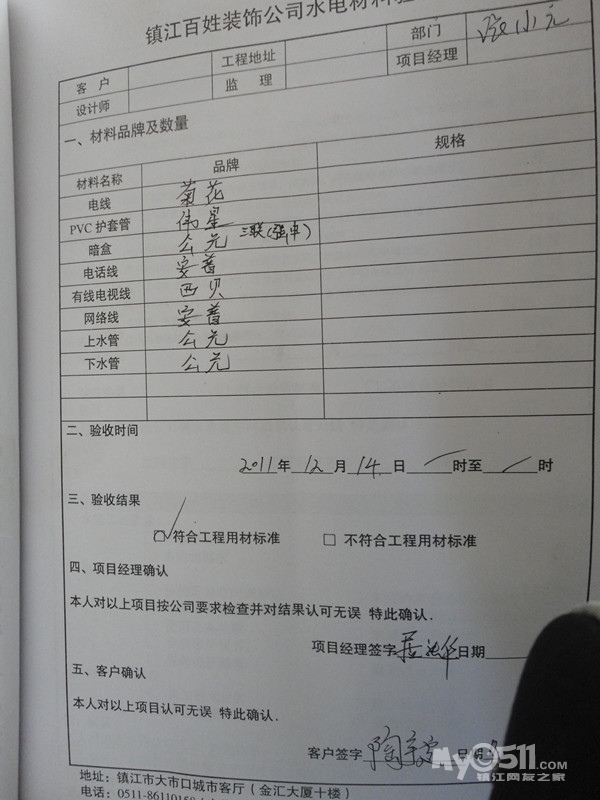 镇江百姓装饰公司水电材料
客 户 工程地址 部门
设计师 监 理 项目经理
一、材料品牌及数量
材料名称 品牌 规格
电线 菊花
PVC 护套管 伟星
暗盒 公元 三联(强冲)
电话线 安普
有线电视线 西贝
网络线 安普
上水管 公元
下水管 公元
二、验收时间
2011 年 12 月 14 日 / 时至 / 时
三、验收结果
☑ 符合工程用材标准 □ 不符合工程用材标准
四、项目经理确认
本人对以上项目按公司要求检查并对结果认可无误 特此确认.
项目经理签字 日期
五、客户确认
本人对以上项目认可无误 特此确认.
客户签字 日期
地址：镇江市大市口城市客厅（金汇大厦十楼）
电话：0511-86110150
My0511.com
镇江网友之家